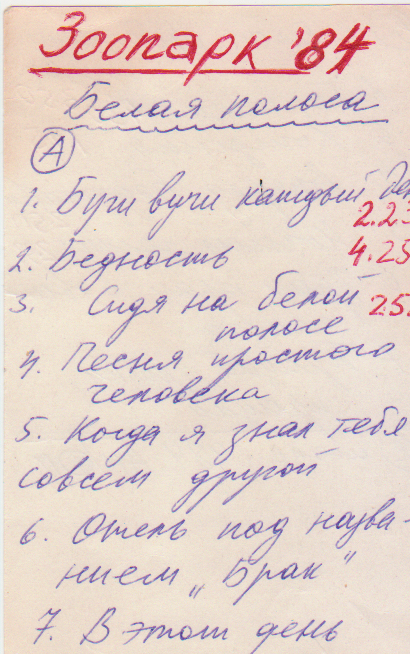 Зоопарк '84
Белая полоса
А
1. Буги вуги каждый
2.23
2. Бедность 4.25
3. Сидя на белой
полосе
4. Песня простого
человека
5. Когда я знал тебя
совсем другой
6. Отель под назва-
нием „Брак"
7. В этот день